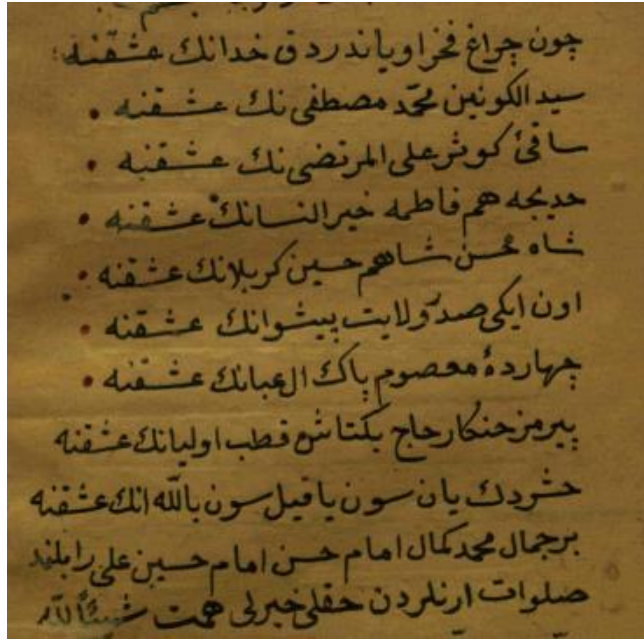 چون چراغ فخر اویاندردق خدانك عشقنه
سید الكونین محمّد مصطفی نك عشقنه
ساقئ كوثر علی المرتضی نك عشقنه
خدیجه هم فاطمه خیر النسانك عشقنه
شاه حسن شاهم حسین كربلانك عشقنه
اون ایكی صدر ولایت پیشوانك عشقنه
چهاردۀ معصوم پاك ال عبانك عشقنه
پیرمز حنكار حاج بكتاش قطب اولیانك عشقنه
حشردك یان سون یاقیل سون باللّه انك عشقنه
بر جمال محمد كمال امام حسن امام حسین علی را بلند
صلوات ارنلردن حقلی خیرلی همت شیئاً للّه